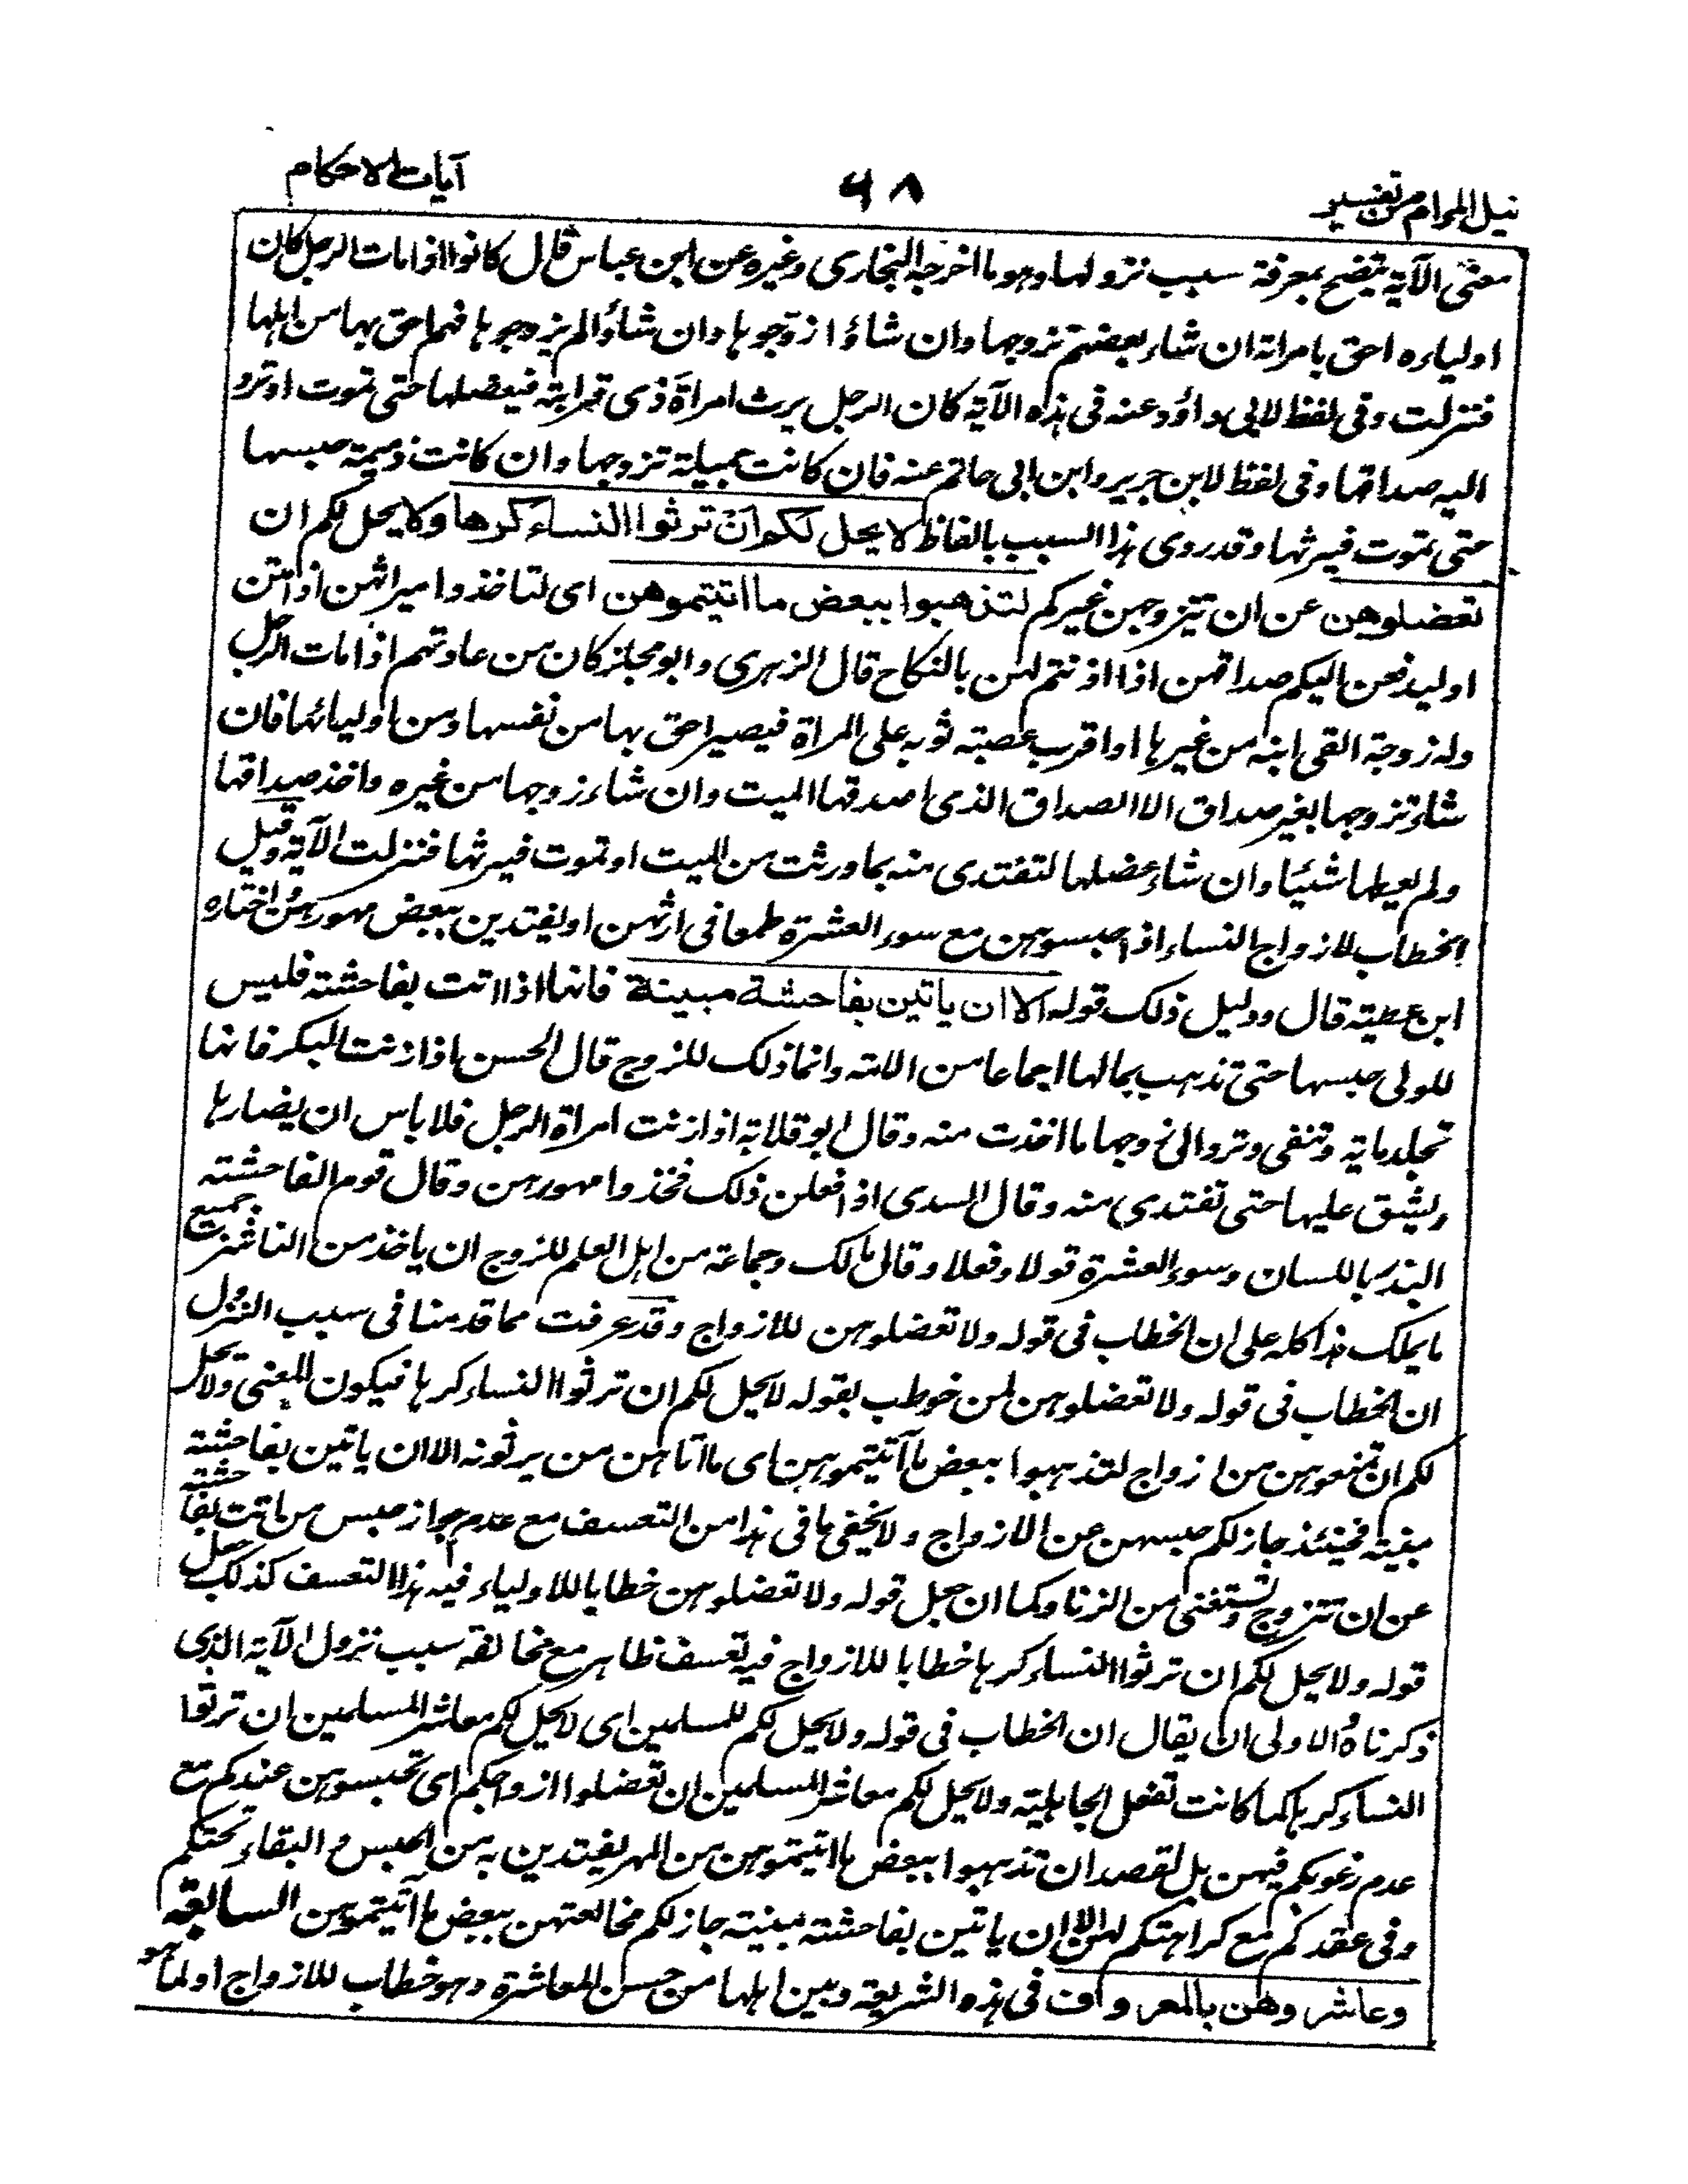 نيل المرام من تفسير
٦٨
آيات الاحكام
معنى الآية يتضح بمعرفة سبب نزولها وهو ما اخرجه البخارى وغيره عن ابن عباس قال كانوا اذا مات الرجل كان
اولياءه احق بامراته ان شاء بعضهم تزوجها وان شاؤا زوجوها وان شاؤا لم يزوجوها فهم احق بها من اهلها
فنزلت وفى لفظ لابى داؤد عنه فى هذه الآية كان الرجل يرث امراة ذى قرابته فيعضلها حتى تموت او ترد
اليه صداقها وفى لفظ لابن جرير وابن ابى حاتم عنه فان كانت جميلة تزوجها وان كانت ذميمة حبسها
حتى تموت فيرثها وقد روى هذا السبب بالفاظ لا يحل لكم ان ترثوا النساء كرها ولا يحل لكم ان
تعضلوهن عن ان تتزوجن غيركم لتذهبوا ببعض ما اتيتموهن اى لتاخذوا ميراثهن اذا متن
او ليدفعن اليكم صداقهن اذا اذنتم لهن بالنكاح قال الزهرى وابو مجلز كان من عادتهم اذا مات الرجل
وله زوجة القى ابنه من غيرها او اقرب عصبته ثوبه على المراة فيصير احق بها من نفسها ومن اوليائها فان
شاء تزوجها بغير صداق الا الصداق الذى اصدقها الميت وان شاء زوجها من غيره واخذ صداقها
ولم يعطها شيئا وان شاء عضلها لتفتدى منه بما ورثت من الميت او تموت فيرثها فنزلت الآية وقيل
الخطاب لازواج النساء اذا حبسوهن مع سوء العشرة طمعا فى ارثهن او يفتدين ببعض مهورهن واختاره
ابن عطية قال ودليل ذلك قوله الا ان ياتين بفاحشة مبينة فانها اذا اتت بفاحشة فليس
للولى حبسها حتى تذهب بمالها اجماعا من الامة وانما ذلك للزوج قال الحسن اذا زنت البكر فانها
تجلد ماية وتنفى وترد الى زوجها ما اخذت منه وقال ابو قلابة اذا زنت امراة الرجل فلا باس ان يضارها
ويشق عليها حتى تفتدى منه وقال السدى اذا فعلن ذلك فخذوا مهورهن وقال قوم الفاحشة
البذاء باللسان وسوء العشرة قولا وفعلا وقال مالك وجماعة من اهل العلم للزوج ان ياخذ من الناشزت جميع
ما يملك هذا كله على ان الخطاب فى قوله ولا تعضلوهن للازواج وقد عرفت مما قدمنا فى سبب النزول
ان الخطاب فى قوله ولا تعضلوهن لمن خوطب بقوله لا يحل لكم ان ترثوا النساء كرها فيكون المعنى ولا يحل
لكم ان تمنعوهن من ازواج لتذهبوا ببعض ما آتيتموهن اى ما اتاهن من يرثونه الا ان ياتين بفاحشة
مبينة فحينئذ جاز لكم حبسهن عن الازواج ولا يخفى ما فى هذا من التعسف مع عدم جواز حبس من اتت بفاحشة
عن ان تتزوج وتستغنى من الزنا وكما ان جعل قوله ولا تعضلوهن خطابا للاولياء فيه هذا التعسف كذلك جعل
قوله ولا يحل لكم ان ترثوا النساء كرها خطابا للازواج فيه تعسف ظاهر مع مخالفة سبب نزول الآية الذى
ذكرناه والاولى ان يقال ان الخطاب فى قوله ولا يحل لكم للمسلمين اى لا يحل لكم معاشر المسلمين ان ترثوا
النساء كرها كما كانت تفعل الجاهلية ولا يحل لكم معاشر المسلمين ان تعضلوا ازواجكم اى تحبسوهن عندكم مع
عدم رغوبكم فيهن بل لقصد ان تذهبوا ببعض ما اتيتموهن من المهر يفتدين به من الحبس والبقاء تحتكم
وفى عقدكم مع كراهتكم لهن الا ان ياتين بفاحشة مبينة جاز لكم مخالعتهن ببعض ما آتيتموهن السابقه
وعاشروهن بالمعروف فى هذه الشريعة وبين اهلها من حسن المعاشرة وهو خطاب للازواج او لما هو